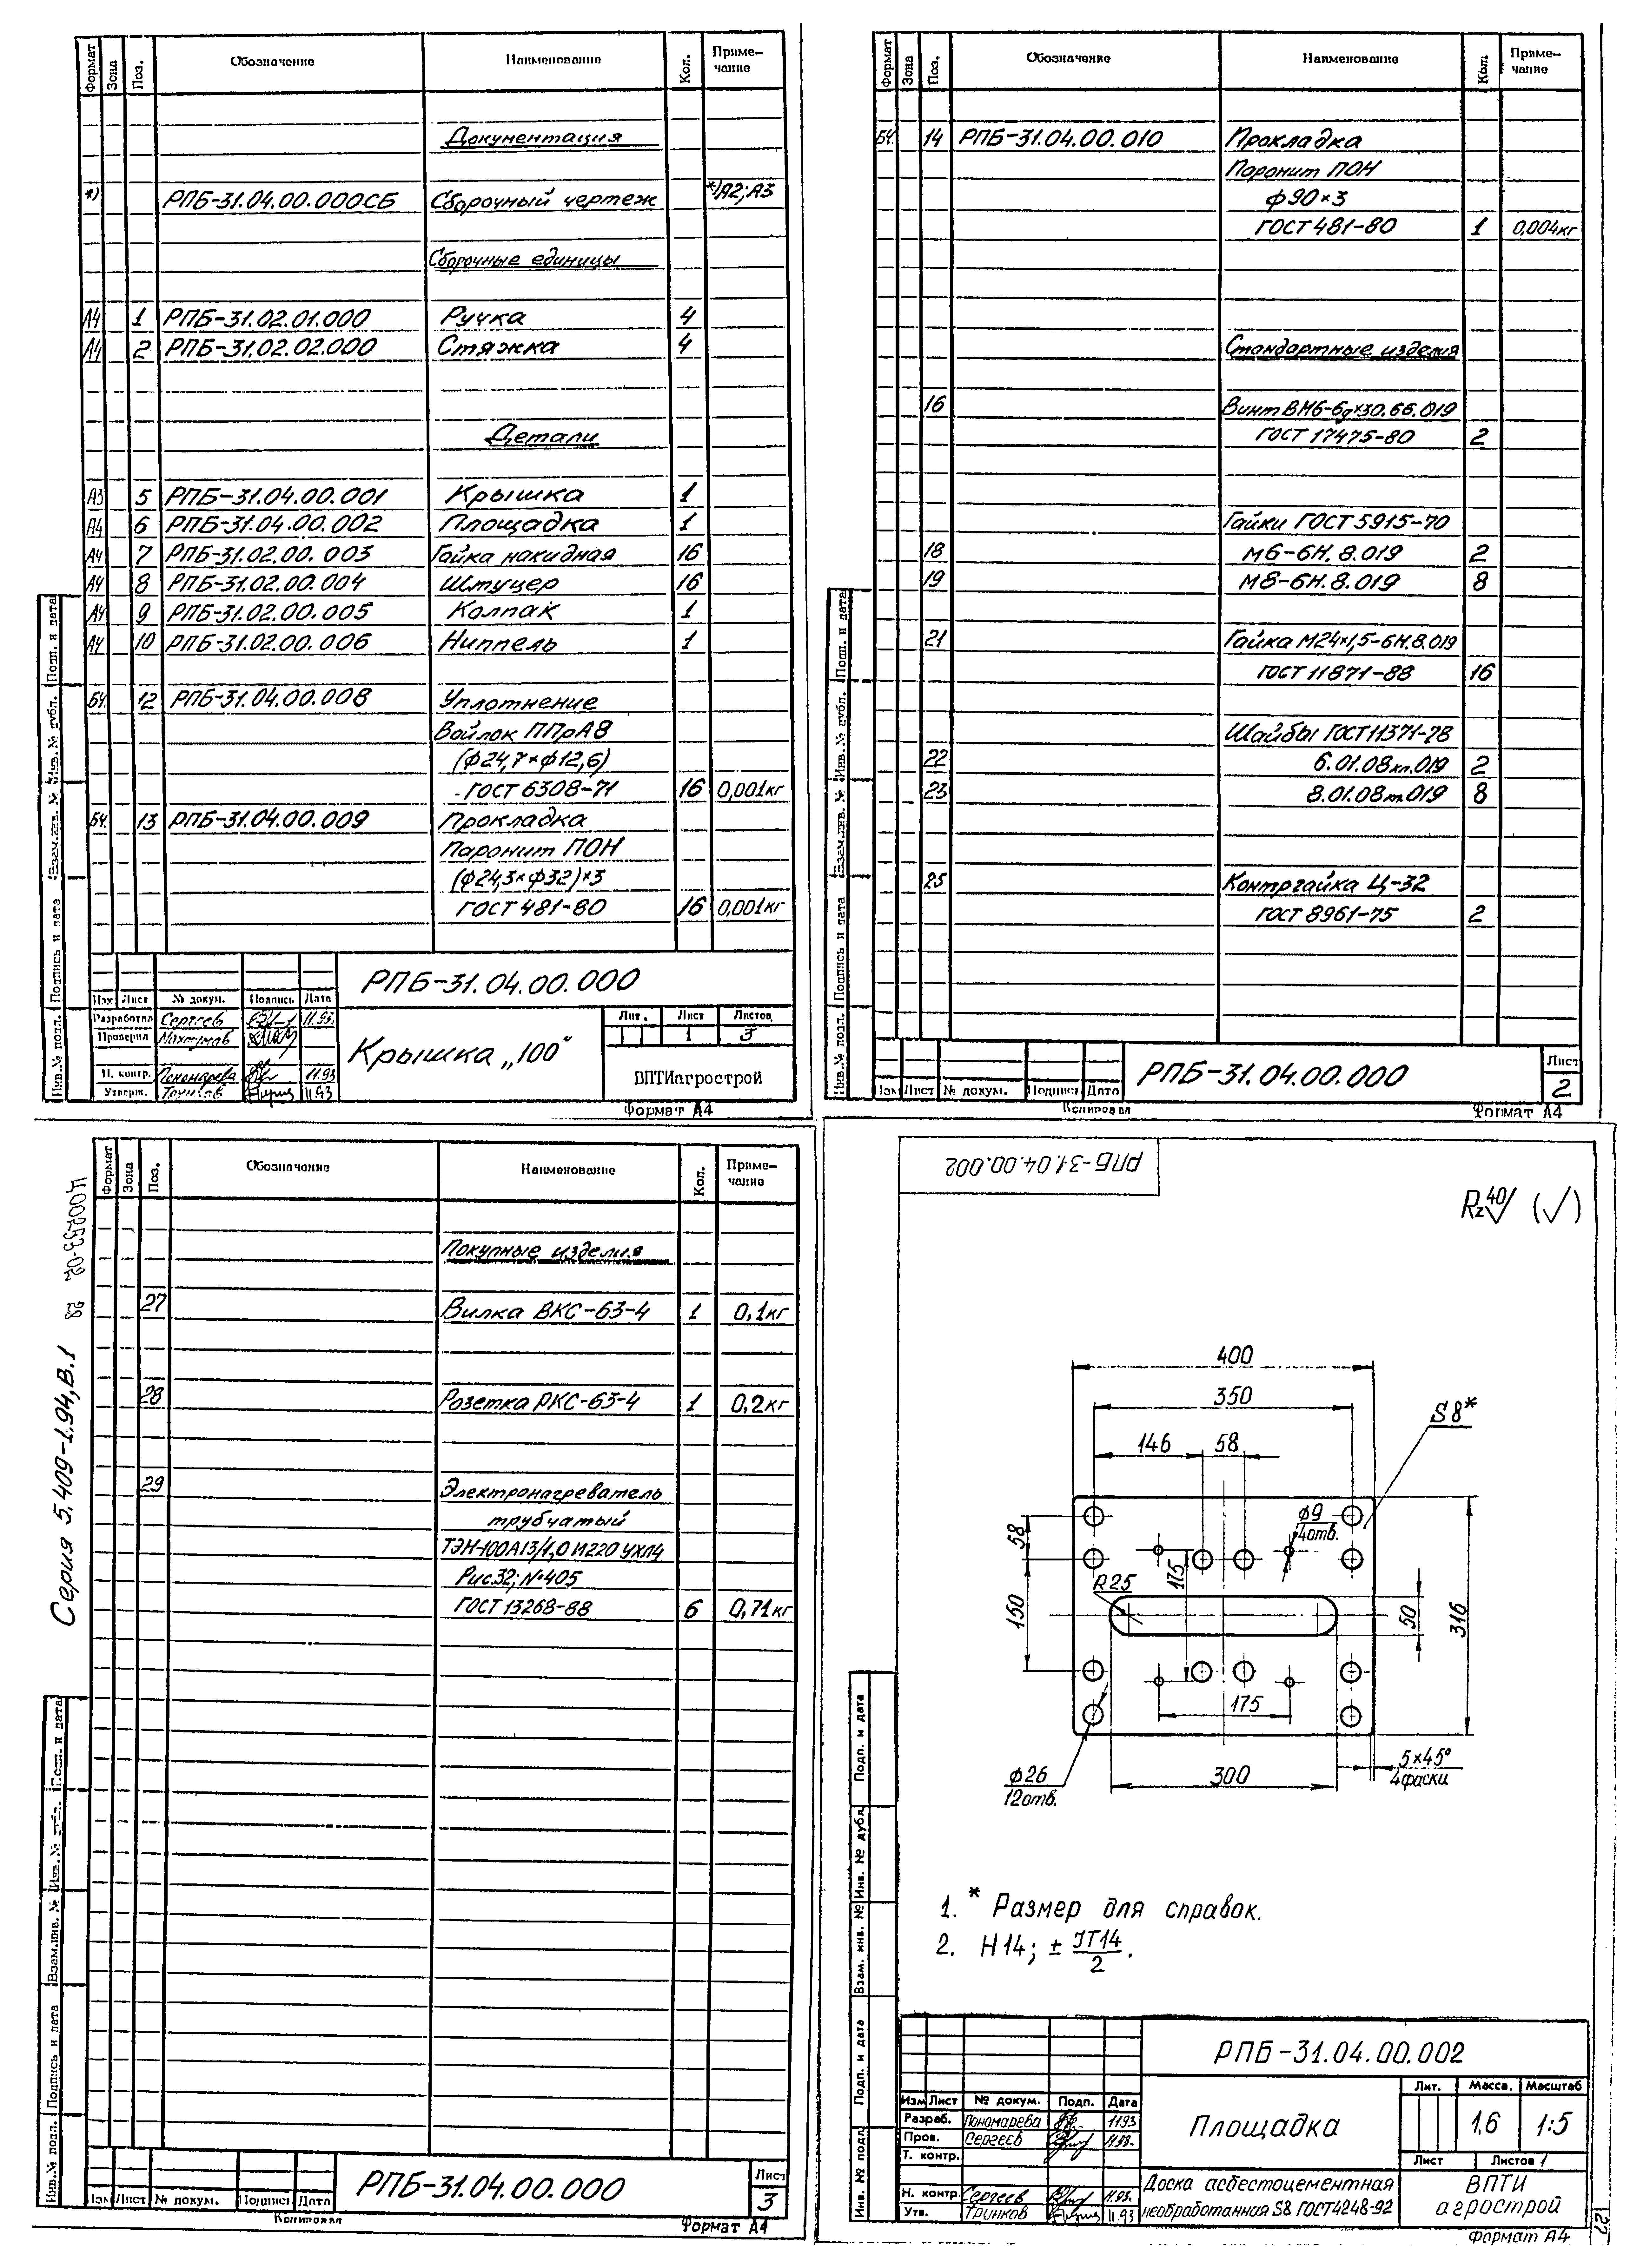 Формат Зона Поз. Обозначение Наименование Кол. Приме-
чание
Документация
*) РПБ-31.04.00.000СБ Сборочный чертеж *)А2;А3
Сборочные единицы
А4 1 РПБ-31.02.01.000 Ручка 4
А4 2 РПБ-31.02.02.000 Стяжка 4
Детали
А3 5 РПБ-31.04.00.001 Крышка 1
А4 6 РПБ-31.04.00.002 Площадка 1
А4 7 РПБ-31.02.00.003 Гайка накидная 16
А4 8 РПБ-31.02.00.004 Штуцер 16
А4 9 РПБ-31.02.00.005 Колпак 1
А4 10 РПБ-31.02.00.006 Ниппель 1
БЧ 12 РПБ-31.04.00.008 Уплотнение
Войлок ППрА8
(ф24,7×ф12,6)
ГОСТ 6308-71 16 0,001кг
БЧ 13 РПБ-31.04.00.009 Прокладка
Паронит ПОН
(ф24,3×ф32)×3
ГОСТ 481-80 16 0,001кг
РПБ-31.04.00.000
Изм Лист № докум. Подпись Дата
Разработал Сергеев 11.93.
Проверил
Н. контр. Пономарева 11.93
Утверж. Тринков 11.93
Крышка „100“
Лит. Лист Листов
1 3
ВПТИагрострой
Формат А4
Инв.№ подл. Подпись и дата Взам.инв. № Инв.№ дубл. Подп. и дата
Формат Зона Поз. Обозначение Наименование Кол. Приме-
чание
БЧ. 14 РПБ-31.04.00.010 Прокладка
Паронит ПОН
ф90×3
ГОСТ 481-80 1 0,004кг
Стандартные изделия
16 Винт ВМ6-6g×30.66.019
ГОСТ 17475-80 2
Гайки ГОСТ 5915-70
18 М6-6Н.8.019 2
19 М8-6Н.8.019 8
21 Гайка М24×1,5-6Н.8.019
ГОСТ 11871-88 16
Шайбы ГОСТ 11371-78
22 6.01.08кп.019 2
23 8.01.08кп.019 8
25 Контргайка Ц-32
ГОСТ 8961-75 2
Изм Лист № докум. Подпись Дата
РПБ-31.04.00.000
Лист
2
Копировал Формат А4
Инв.№ подл. Подпись и дата Взам.инв. № Инв.№ дубл. Подп. и дата
Ц00253-02 28
Серия 5.409-1.94, В.1
Формат Зона Поз. Обозначение Наименование Кол. Приме-
чание
Покупные изделия
27 Вилка ВКС-63-4 1 0,1кг
28 Розетка РКС-63-4 1 0,2кг
29 Электронагреватель
трубчатый
ТЭН-100А13/1,0И220 УХЛ4
Рис.32; №405
ГОСТ 13268-88 6 0,71кг
Изм Лист № докум. Подпись Дата
РПБ-31.04.00.000
Лист
3
Копировал Формат А4
Инв.№ подл. Подпись и дата Взам.инв. № Инв.№ дубл. Подп. и дата
РПБ-31.04.00.002
Rz40 (√)
400
350
146 58
S8*
58
ф9
4отв.
175
R25
150
50
316
175
ф26
12отв.
300
5×45°
4 фаски
1. * Размер для справок.
2. Н14; ± IT14
2 .
РПБ-31.04.00.002
Изм Лист № докум. Подп. Дата
Разраб. Пономарева 11.93
Пров. Сергеев 11.93.
Т. контр.
Н. контр Сергеев 11.93.
Утв. Тринков 11.93
Площадка
Лит. Масса. Масштаб
1,6 1:5
Лист Листов 1
Доска асбестоцементная
необработанная S8 ГОСТ4248-92
ВПТИ
агрострой
Формат А4
Инв. № подл Подп. и дата Взам. инв. № Инв. № дубл. Подп. и дата
27